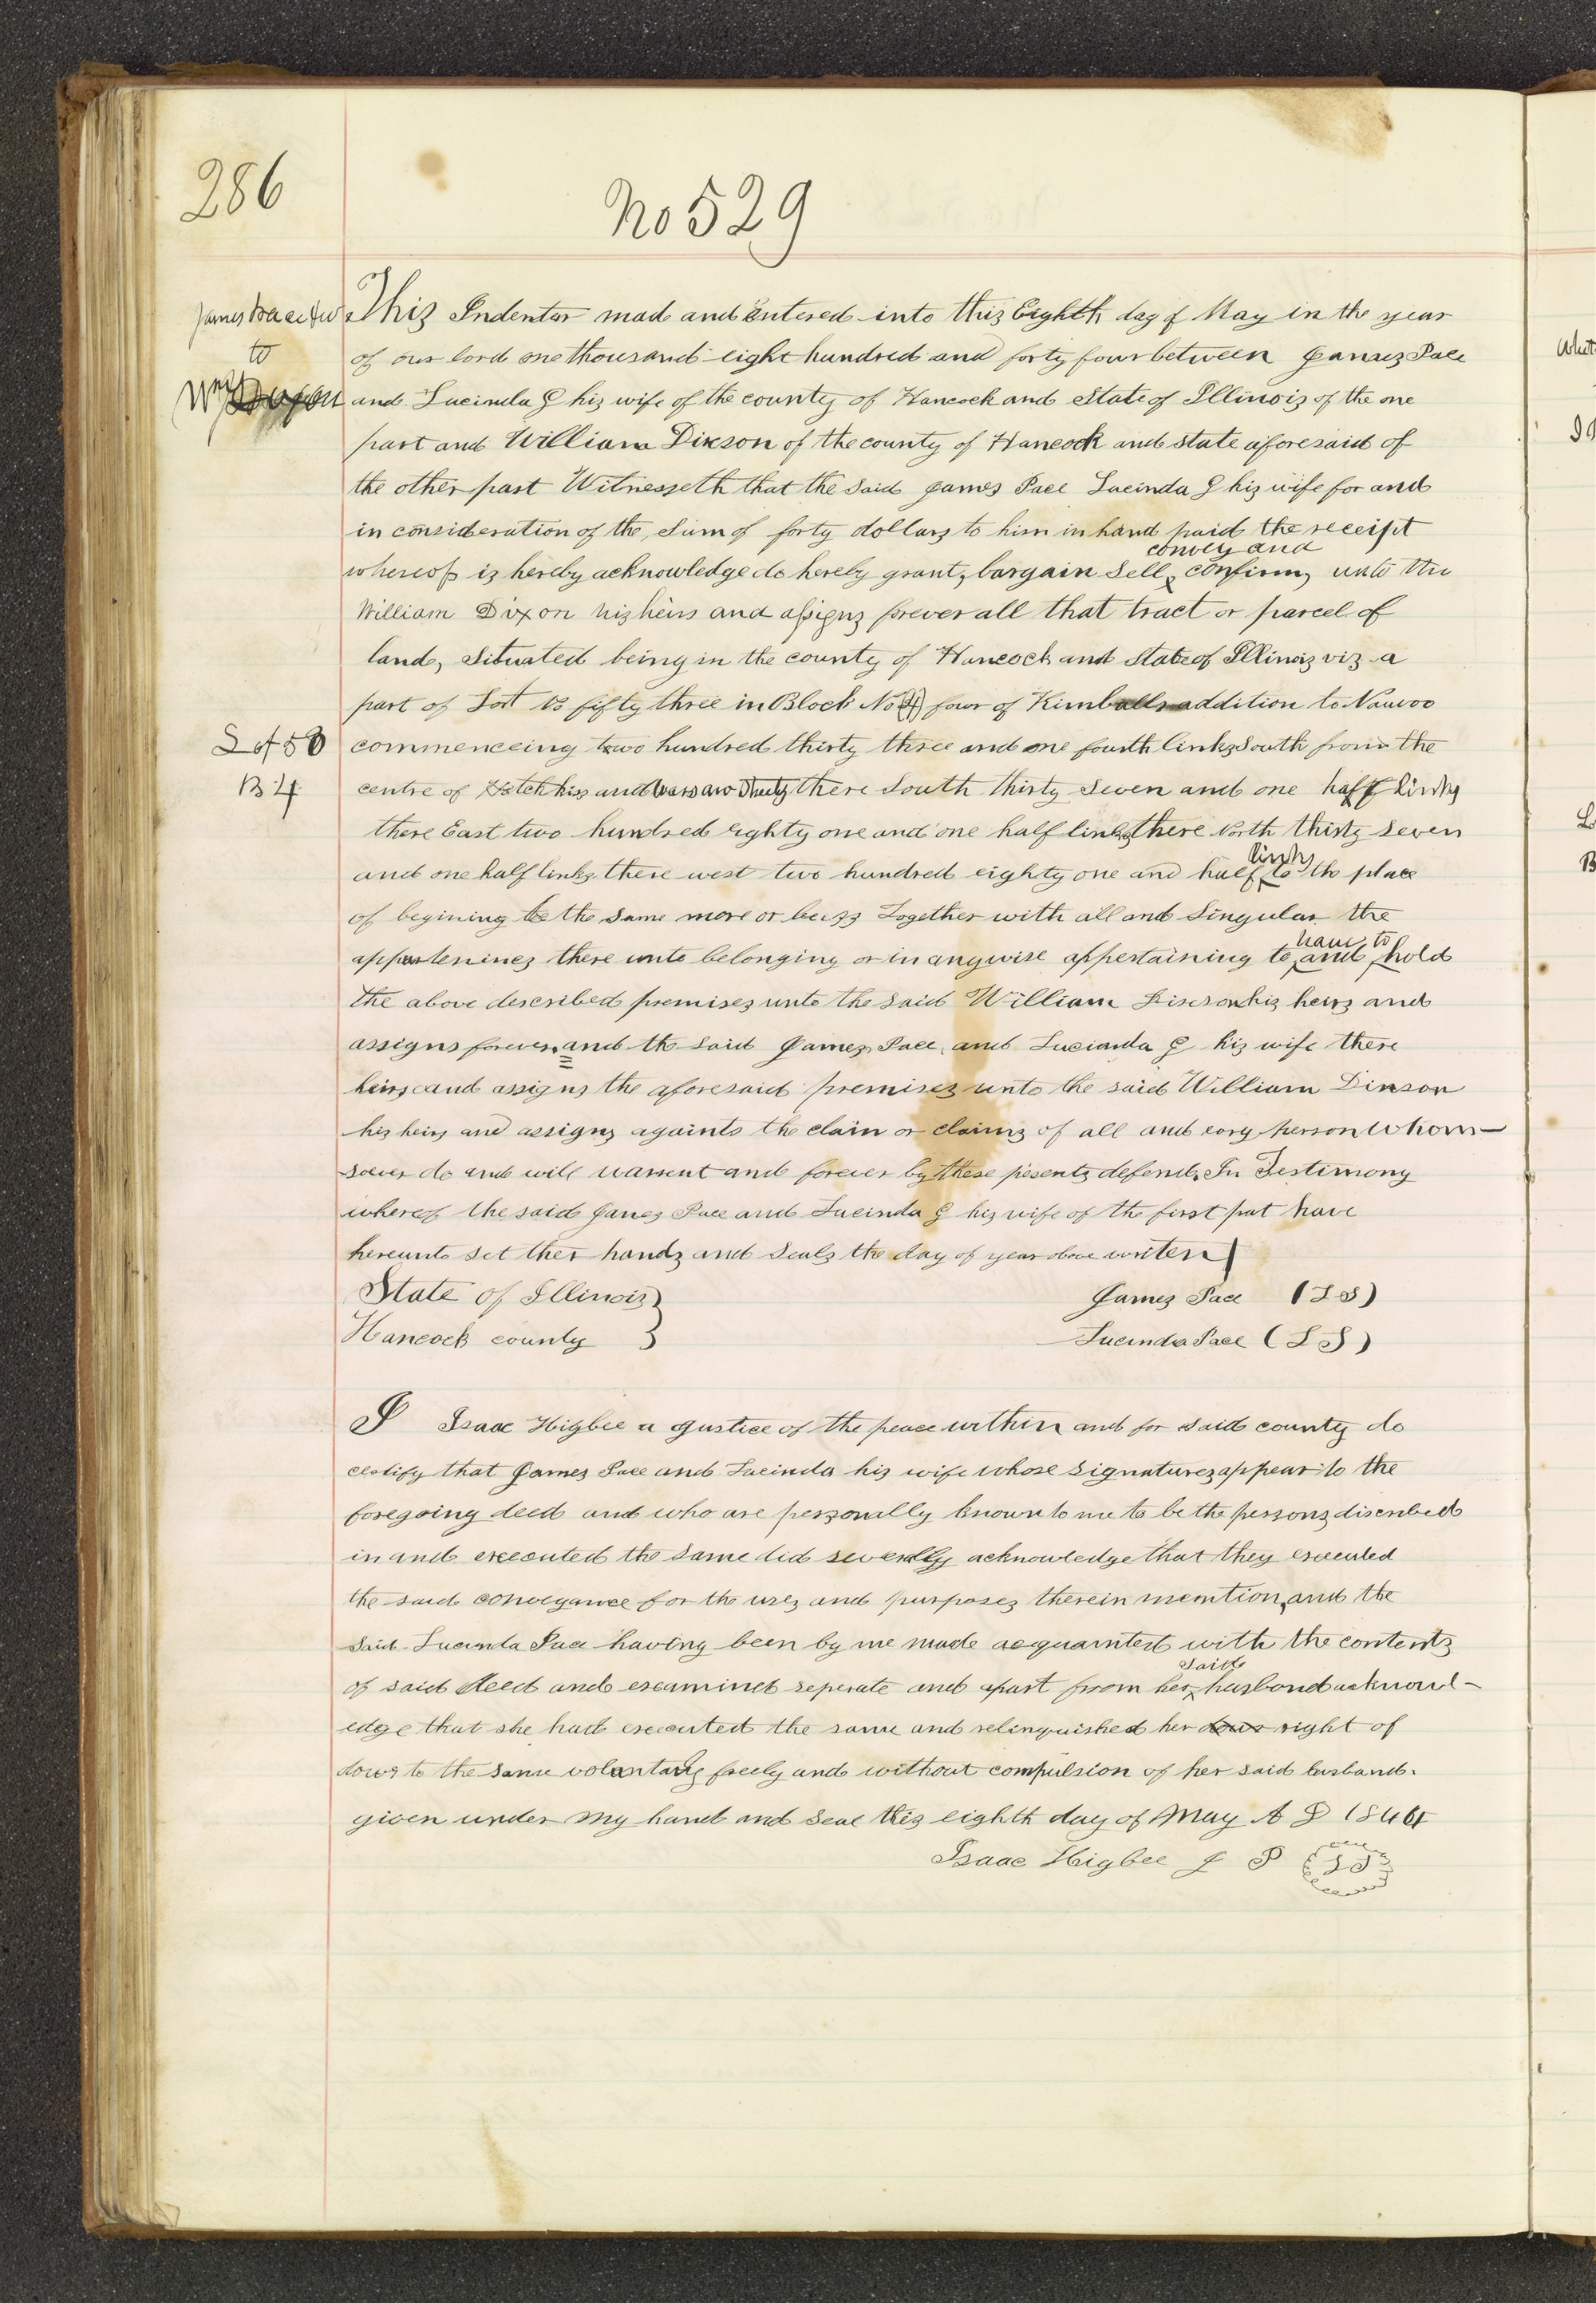 286
No 529
James Pace & w
to
Wm Dixon
This Indenter mad and Entered into this Eighth day of May in the year
of our lord one thousand eight hundred and forty four between James Pace
and Lucinda G his wife of the county of Hancock and State of Illinois of the one
part and William Dixson of the county of Hancock and state aforesaid of
the other part Witnesseth that the said James Pace Lucinda G his wife for and
in consideration of the Sum of forty dollars to him in hand paid the receipt
convey and
whereof is hereby acknowledge do hereby grant, bargain Sell, confirm, unto the
William Dixon his heirs and assigns forever all that tract or parcel of
land, Situated being in the county of Hancock and State of Illinois viz a
part of Lot No fifty three in Block No (4) four of Kimballs addition to Nauvoo
Lot 53
B 4
commenceing two hundred thirty three and one fourth links South from the
centre of Hotchkiss and Warsaw Streets there South thirty Seven and one half links
there East two hundred eighty one and one half links there North thirty Seven
links
and one half links there west two hundred eighty one and half to the place
of begining be the Same more or less Together with all and Singular the
have to
appertenines there unto belonging or in anywise appertaining to and hold
the above described premises unto the said William Dixson his heirs and
assigns forever, and the said James Pace, and Lucianda G his wife there
heirs and assigns the aforesaid premises unto the said William Dixson
his heirs and assigns againts the claim or claims of all and evry person whom-
soever do and will warrent and forever by these pesents defend. In Testimony
whereof the said James Pace and Lucinda G his wife of the first part have
hereunto set ther hands and Seals the day of year above writen
State of Illinois }
Hancock county }
James Pace (L S)
Lucinda Pace (L S)
I Isaac Higbee a Justice of the peace within and for said county do
certify that James Pace and Lucinda his wife whose signatures appear to the
foregoing deed and who are personally known to me to be the persons discribed
in and executed the same did severally acknowledge that they executed
the said conveyance for the uses and purposes therein mention, and the
Said Lucinda Pace having been by me made acquainted with the contents
said
of said Deed and examined seperate and apart from her husbond acknowl-
edge that she had executed the same and relinquished her dowr right of
dower to the same voluntarily freely and without compulsion of her said husband.
given under my hand and seal this eighth day of May A D 1844
Isaac Higbee J P (L S)